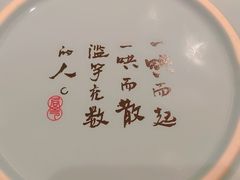 一哄而起
一哄而散
滥竽充数
的人。